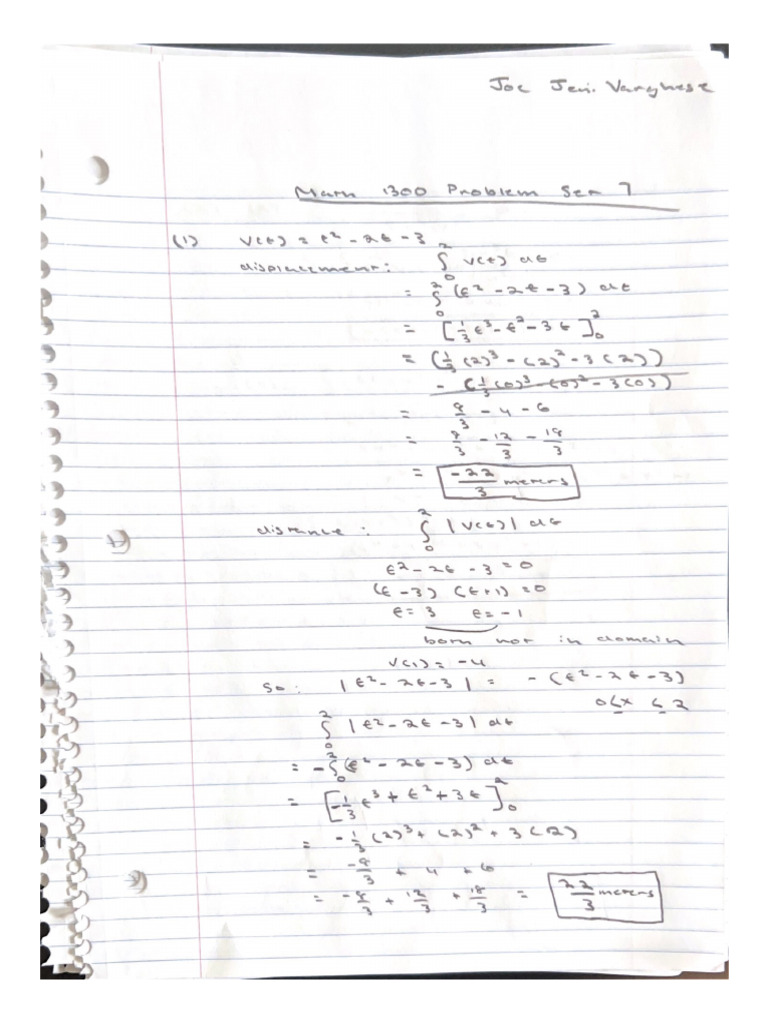 Joe Jeni Varghese
Math 1300 Problem Set 7
(1) v(t) = t² - 2t - 3
displacement: ∫₀² v(t) dt
= ∫₀² (t² - 2t - 3) dt
= [⅓t³ - t² - 3t]₀²
= (⅓(2)³ - (2)² - 3(2))
- (⅓(0)³ - (0)² - 3(0))
= 8/3 - 4 - 6
= 8/3 - 12/3 - 18/3
= -22/3 meters
distance: ∫₀² |v(t)| dt
t² - 2t - 3 = 0
(t - 3) (t + 1) = 0
t = 3 t = -1
both not in domain
v(1) = -4
So: |t² - 2t - 3| = - (t² - 2t - 3)
0 ≤ x ≤ 2
∫₀² |t² - 2t - 3| dt
= -∫₀² (t² - 2t - 3) dt
= [-⅓t³ + t² + 3t]₀²
= -⅓(2)³ + (2)² + 3(2)
= -8/3 + 4 + 6
= -8/3 + 12/3 + 18/3 = 22/3 meters